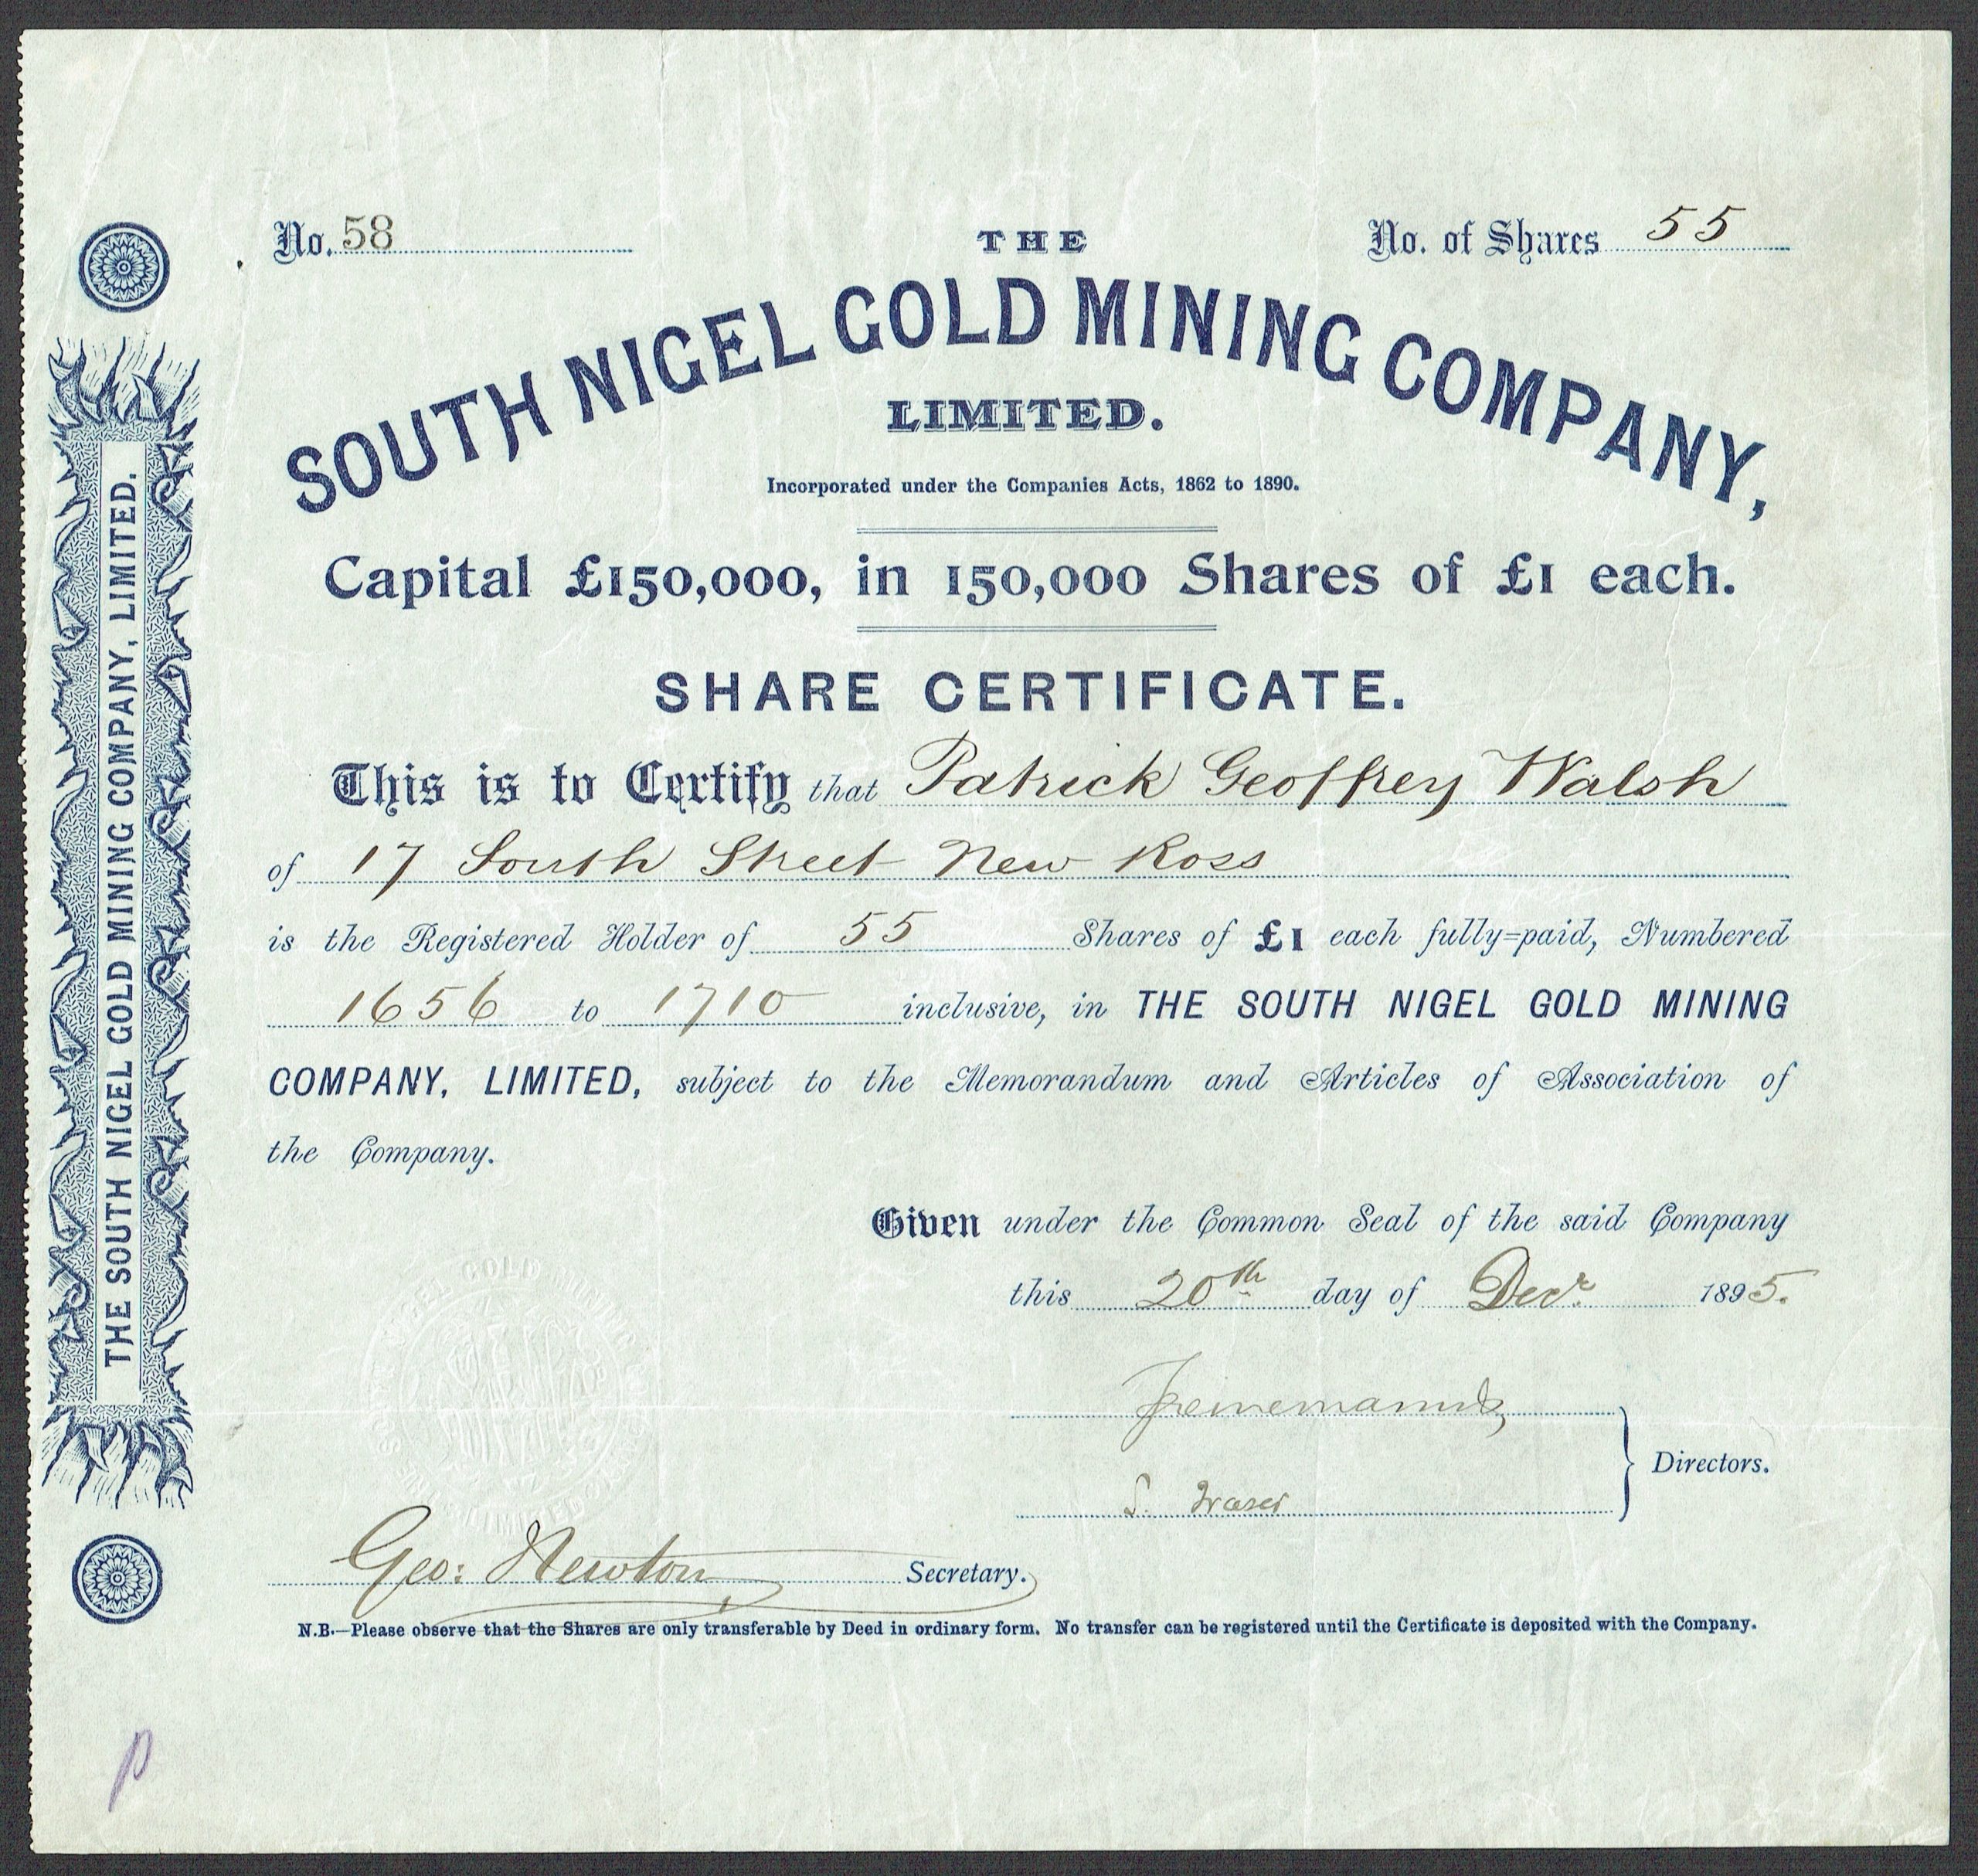 No. 58
No. of Shares 55
THE
SOUTH NIGEL GOLD MINING COMPANY,
LIMITED.
Incorporated under the Companies Acts, 1862 to 1890.
Capital £150,000, in 150,000 Shares of £1 each.
SHARE CERTIFICATE.
This is to Certify that Patrick Geoffrey Walsh
of 17 South Street New Ross
is the Registered Holder of 55 Shares of £1 each fully=paid, Numbered
1656 to 1710 inclusive, in THE SOUTH NIGEL GOLD MINING
COMPANY, LIMITED, subject to the Memorandum and Articles of Association of
the Company.
Given under the Common Seal of the said Company
this 20th day of Decr. 1895.
Directors.
Geo: Newton Secretary.
N.B.—Please observe that the Shares are only transferable by Deed in ordinary form. No transfer can be registered until the Certificate is deposited with the Company.
THE SOUTH NIGEL GOLD MINING COMPANY, LIMITED.